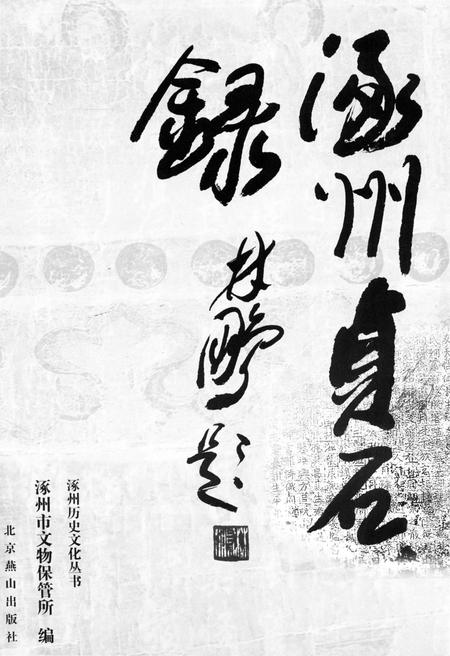 涿州貞石
録
林鹏题
涿州历史文化丛书
涿州市文物保管所 编
北京燕山出版社